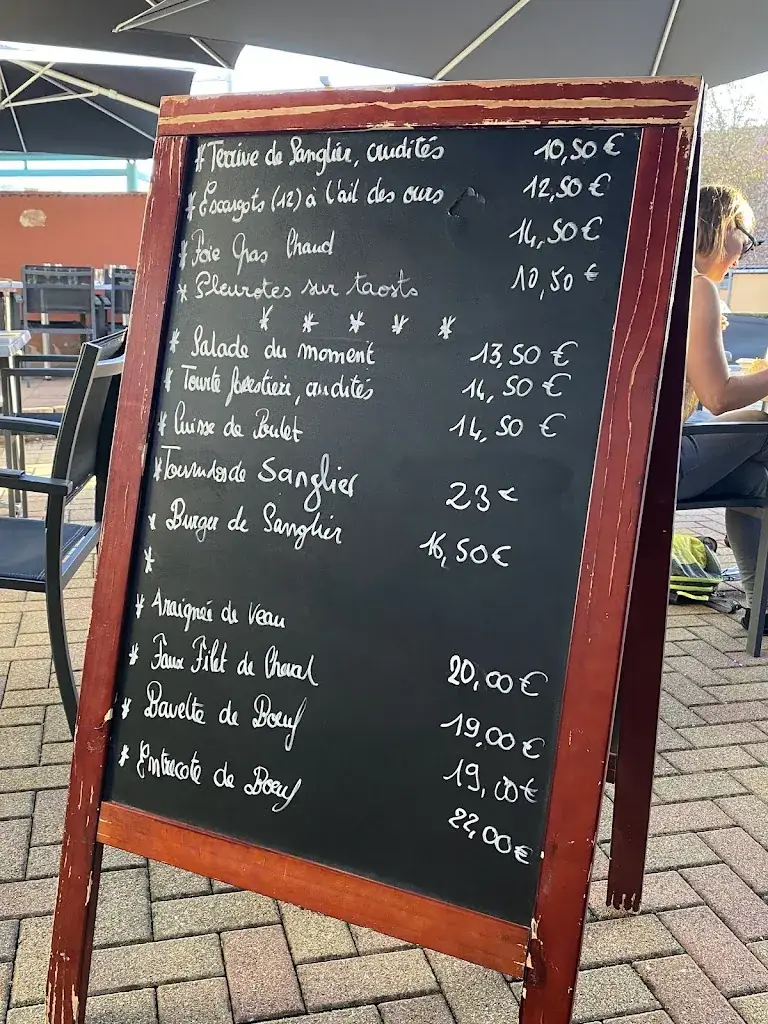 * Terrine de Sanglier, crudités 10,50 €
* Escargots (12) à l'ail des ours 12,50 €
* Foie Gras Chaud 14,50 €
* Pleurotes sur taosts 10,50 €
* * * * *
* Salade du moment 13,50 €
* Tourte forestière, crudités 14,50 €
* Cuisse de Poulet 14,50 €
* Tournedos de Sanglier 23 €
* Burger de Sanglier 16,50 €
*
* Araignée de Veau 20,00 €
* Faux Filet de Cheval 19,00 €
* Bavette de Boeuf 19,00 €
* Entrecote de Boeuf 22,00 €